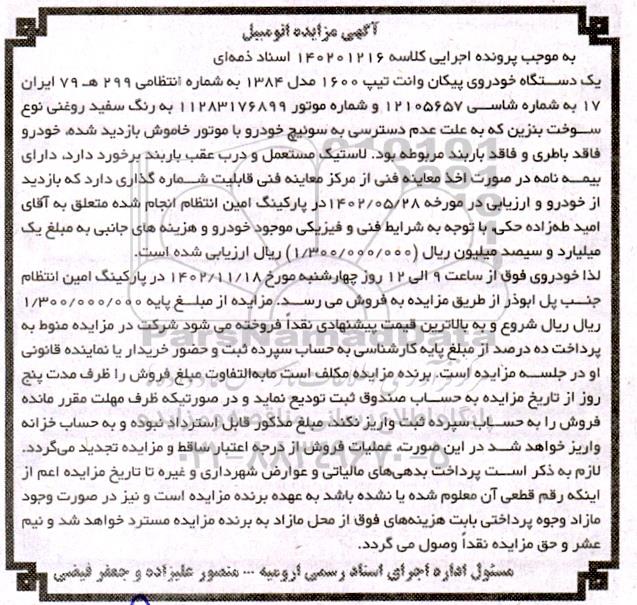 آگهی مزایده اتومبیل
به موجب پرونده اجرایی کلاسه ۱۴۰۲۰۱۲۱۶ اسناد ذمه‌ای
یک دستگاه خودروی پیکان وانت تیپ ۱۶۰۰ مدل ۱۳۸۴ به شماره انتظامی ۲۹۹ هـ ۷۹ ایران
۱۷ به شماره شاسی ۱۲۱۰۵۶۵۷ و شماره موتور ۱۱۲۸۳۱۷۶۸۹۹ به رنگ سفید روغنی نوع
سوخت بنزین که به علت عدم دسترسی به سوئیچ خودرو با موتور خاموش بازدید شده، خودرو
فاقد باطری و فاقد باربند مربوطه بود. لاستیک مستعمل و درب عقب باربند برخورد دارد، دارای
بیمه نامه در صورت اخذ معاینه فنی از مرکز معاینه فنی قابلیت شماره گذاری دارد که بازدید
از خودرو و ارزیابی در مورخه ۱۴۰۲/۰۵/۲۸در پارکینگ امین انتظام انجام شده متعلق به آقای
امید طه‌زاده حکی، با توجه به شرایط فنی و فیزیکی موجود خودرو و هزینه های جانبی به مبلغ یک
میلیارد و سیصد میلیون ریال (۱/۳۰۰/۰۰۰/۰۰۰) ریال ارزیابی شده است.
لذا خودروی فوق از ساعت ۹ الی ۱۲ روز چهارشنبه مورخ ۱۴۰۲/۱۱/۱۸ در پارکینگ امین انتظام
جنب پل ابوذر از طریق مزایده به فروش می رسد. مزایده از مبلغ پایه ۱/۳۰۰/۰۰۰/۰۰۰
ریال ریال شروع و به بالاترین قیمت پیشنهادی نقداً فروخته می شود شرکت در مزایده منوط به
پرداخت ده درصد از مبلغ پایه کارشناسی به حساب سپرده ثبت و حضور خریدار یا نماینده قانونی
او در جلسه مزایده است. برنده مزایده مکلف است مابه‌التفاوت مبلغ فروش را ظرف مدت پنج
روز از تاریخ مزایده به حساب صندوق ثبت تودیع نماید و در صورتیکه ظرف مهلت مقرر مانده
فروش را به حساب سپرده ثبت واریز نکند، مبلغ مذکور قابل استرداد نبوده و به حساب خزانه
واریز خواهد شد در این صورت، عملیات فروش از درجه اعتبار ساقط و مزایده تجدید می‌گردد.
لازم به ذکر است پرداخت بدهی‌های مالیاتی و عوارض شهرداری و غیره تا تاریخ مزایده اعم از
اینکه رقم قطعی آن معلوم شده یا نشده باشد به عهده برنده مزایده است و نیز در صورت وجود
مازاد وجوه پرداختی بابت هزینه‌های فوق از محل مازاد به برنده مزایده مسترد خواهد شد و نیم
عشر و حق مزایده نقداً وصول می گردد.
مسئول اداره اجرای اسناد رسمی ارومیه ... منصور علیزاده و جعفر فیضی
ParsNamadData
۰۲۱-۸۸۳۴۹۶۷۰-۵